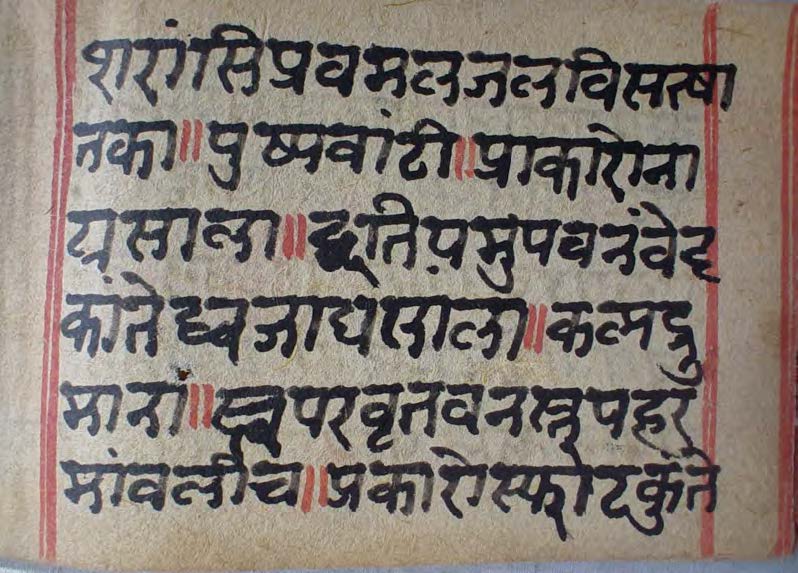 शरांसिप्रवमलजलविसत्षा
तका॥पुष्पवांटी॥प्राकारोना
य्रसाला॥द्धतिय़मुपवनंवेद
कांतेध्वजाद्यसाला॥कल्पद्रु
मानां॥स्त्वपरवृतवनस्तुपहर्
मांवलीच॥प्रकारोस्फाटकुंते